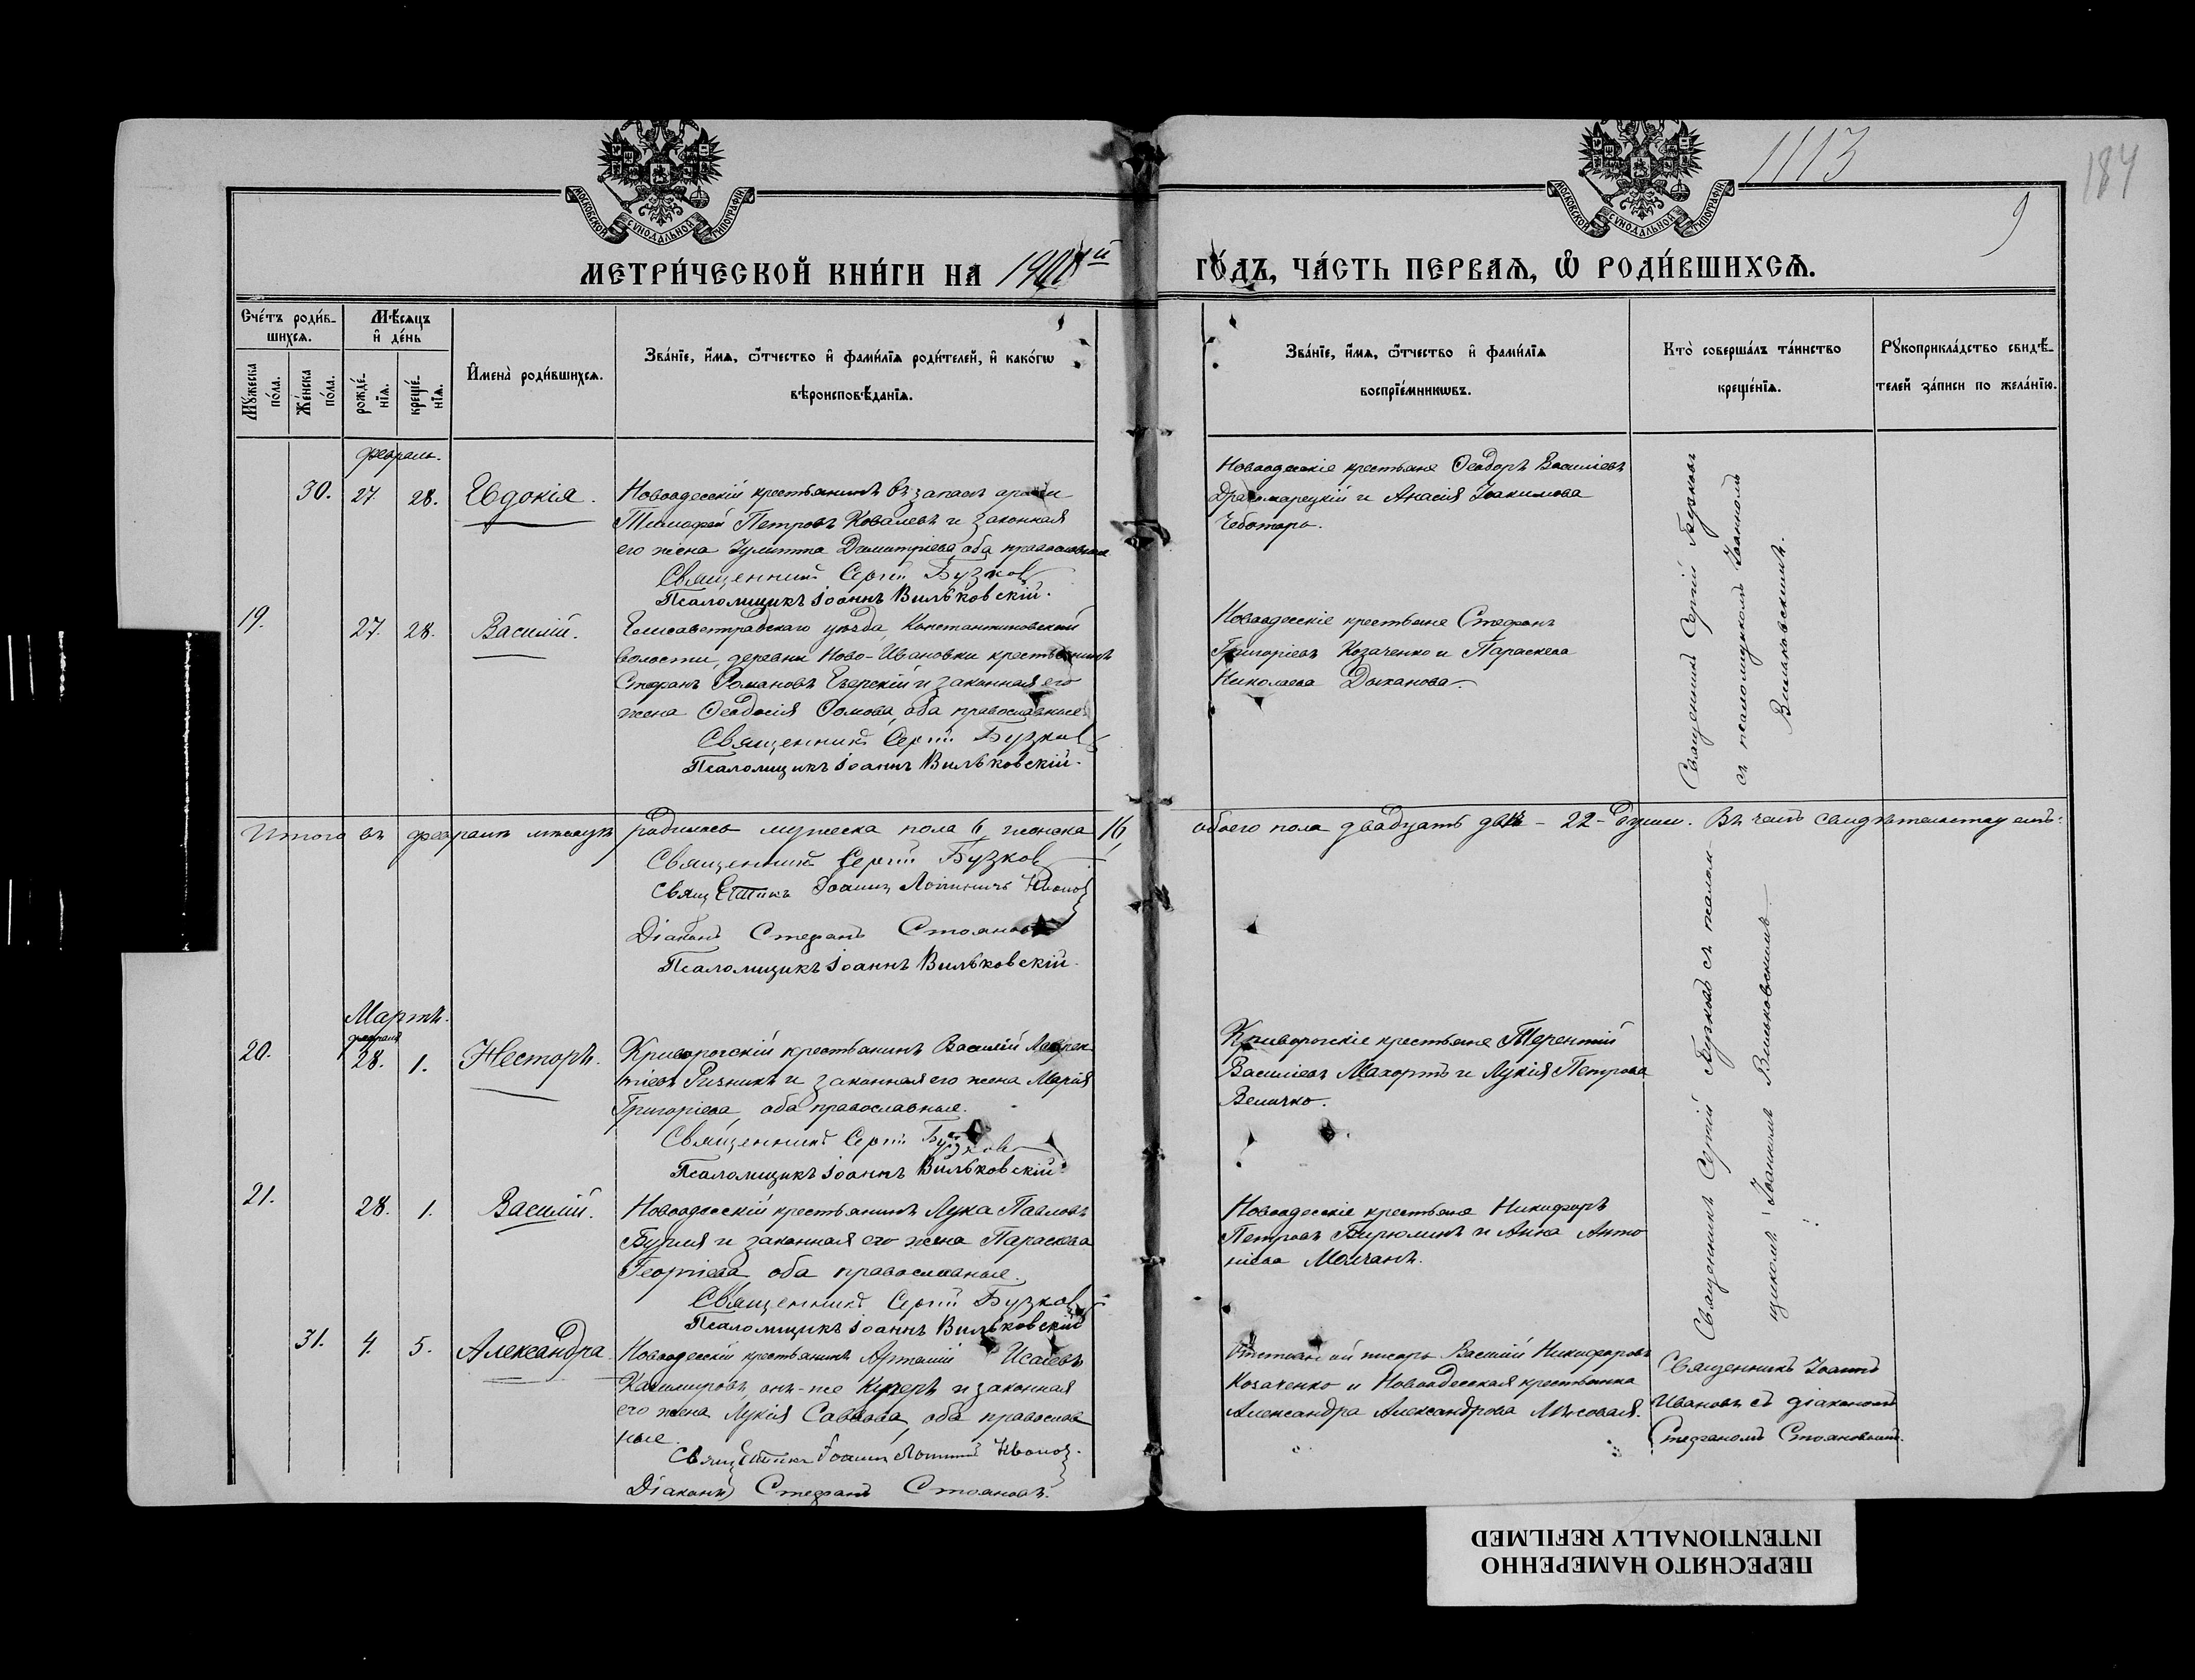 1113
184
9
МОСКОВСКОЙ СѴНОДАЛЬНОЙ ТИПОГРАФІИ
МОСКОВСКОЙ СѴНОДАЛЬНОЙ ТИПОГРАФІИ
МЕТРИ́ЧЕСКОЙ КНИ́ГИ НА
ГО́ДЪ, ЧА́СТЬ ПЕРВАѦ, Ѡ РОДИ́ВШИХСѦ.
Сче́тъ роди́в-
шихсѧ.
Мѣ́сѧцъ
и҆ де́нь
Мꙋ́жеска по́ла.
Же́нска по́ла.
рожде́-
нїѧ.
креще́-
нїѧ.
И҆мена̀ роди́вшихсѧ.
Зва́нїе, и҆́мѧ, ѻ҆́тчество и҆ фами́лїѧ роди́телей, и҆ како́гѡ
вѣроисповѣ́данїѧ.
Зва́нїе, и҆́мѧ, ѻ҆́тчество и҆ фами́лїѧ
воспрїе́мникѡвъ.
Кто̀ соверша́лъ та́инство
креще́нїѧ.
Рꙋкоприкла́дство свидѣ́-
телей за́писи по жела́нїю.
февраль.
30. 27. 28. Евдокія.
Новоодесскій крестьянинъ въ запасѣ арміи
Тимофей Петровъ Ковалевъ и законная
его жена Іулитта Димитріева, оба православные
Священникъ Сергій Бузков
Псаломщикъ Іоаннъ Вильковскій.
Новоодесскіе крестьяне Ѳеодоръ Василіевъ
Драгомарецкій и Анасія Іоакимова
Чеботарь.
Священникъ Сергій Бузковъ
съ псаломщикомъ Іоанномъ
Вильковскимъ.
19. 27. 28. Василій.
Елисаветградскаго уѣзда, Константиновской
волости, деревни Ново-Ивановки крестьянинъ
Стефанъ Романовъ и законная его
жена Ѳеодосія Ѳомова, оба православные
Священникъ Сергій Бузков
Псаломщикъ Іоаннъ Вильковскій.
Новоодесскіе крестьяне Стефанъ
Григоріевъ Козаченко и Параскева
Николаева Дыханова.
Итого въ февралѣ мѣсяцѣ родилось мужеска пола 6, женска 16,
обоего пола двадцать двѣ - 22 - души. Въ чемъ свидѣтельствуемъ:
Священникъ Сергій Бузков
Священникъ Іоаннъ Иванов
Діаконъ Стефанъ Стояновъ
Псаломщикъ Іоаннъ Вильковскій.
Мартъ.
февраля
20. 28. 1. Несторъ.
Криворогскій крестьянинъ Василій Лаврен
тіевъ Ризникъ и законная его жена Марія
Григоріева, оба православные.
Священникъ Сергій Бузков
Псаломщикъ Іоаннъ Вильковскій
Криворогскіе крестьяне Терентій
Василіевъ Махортъ и Лукія Петрова
Величко.
Священникъ Сергій Бузковъ съ псалом-
щикомъ Іоанномъ Вильковскимъ
21. 28. 1. Василій.
Новоодесскій крестьянинъ Лука Павловъ
и законная его жена Параскева
Георгіева, оба православные.
Священникъ Сергій Бузков
Псаломщикъ Іоаннъ Вильковскій
Новоодесскіе крестьяне Никифоръ
Петровъ Бирюлинъ и Анна Анто
ніева Молчанъ.
31. 4. 5. Александра
Новоодесскій крестьянинъ Артемій Исаіевъ
Казиміровъ, онъ-же Кучеръ и законная
его жена Лукія Саввова, оба православ
ные.
Священникъ Іоаннъ Иванов.
Діаконъ Стефанъ Стояновъ.
писарь Василій Никифоровъ
Козаченко и Новоодесская крестьянка
Александра Александрова Лѣсовая.
Священникъ Іоаннъ
Ивановъ съ діакономъ
Стефаномъ Стояновымъ.
ПЕРЕСНЯТО НАМЕРЕННО
INTENTIONALLY REFILMED